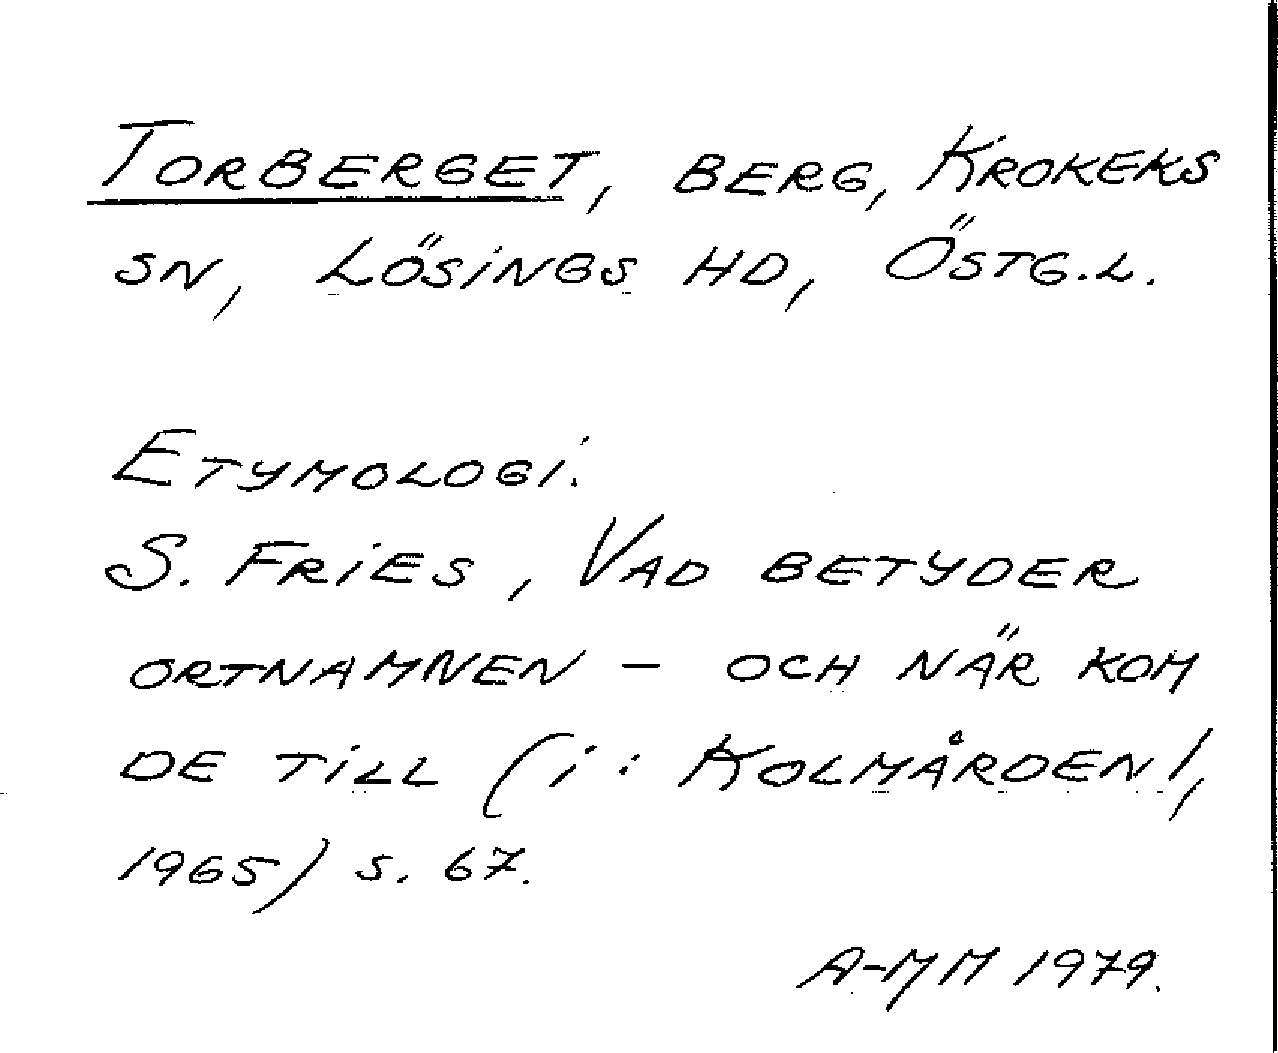 TORBERGET, BERG, KROKEKS
SN, LÖSINGS HD, ÖSTG.L.
ETYMOLOGI.
S. FRIES, VAD BETYDER
ORTNAMNEN – OCH NÄR KOM
DE TILL (i: KOLMÅRDEN!,
1965) S. 67.
A-MM 1979.